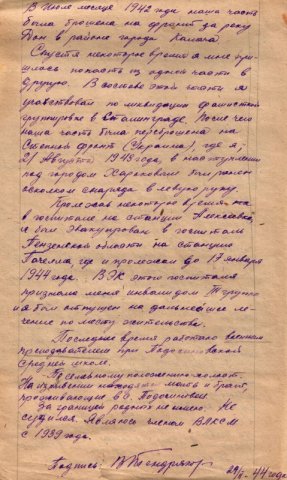 В июле месяце 1942 года наша часть
была брошена на фронт за реку
Дон в районе города Калача
Спустя некоторое время я мне при-
шлось попасть из одной части в
другую. В составе этой части я
участвовал по ликвидации фашистской
группировки в Сталинграде. После чего
наша часть была переброшена на
Степной фронт (Украина), где я,
21 августа 1943 года, в наступлении
под городом Харьковом был ранен
осколком снаряда в левую руку.
Пролежав некоторое время
в госпитале на станции
я был эвакуирован в госпиталь
Пензенской области на станцию
и пролежал до 17 января
1944 года. ВЭК этого госпиталя
признала меня инвалидом III группы
и я был отпущен на дальнейшее ле-
чение по месту жительства.
Последнее время работаю военным
преподавателем при Подосиновской
средней школе.
По семейному положению холост.
На иждивении находятся мать и брат,
проживающие в с. Подосиновец.
За границей родных не имею. Не
судился. Являюсь членом ВЛКСМ
с 1939 года.
Подпись: В Тендряков
44 года